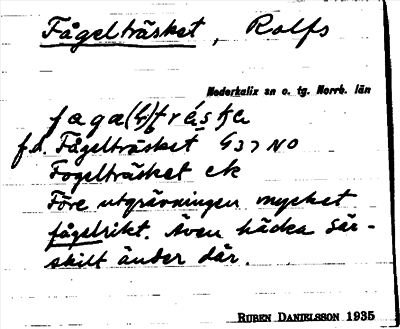 Fågelträsket, Rolfs
Nederkalix sn o. tg. Norrb. län
f.d. Fågelträsket G37 NO
Fogelträsket ek
Före utgrävningen mycket
fågelrikt. Även häcka sär-
skilt änder där.
RUBEN DANIELSSON 1935